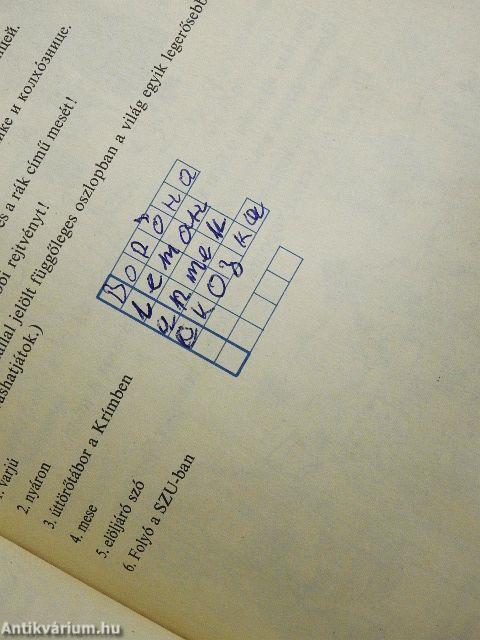 щей.
ике и колхóзнице.
és a rák című mesét!
bbi rejtvényt!
allal jelölt függőleges oszlopban a világ egyik legerősebb
ashatjátok.)
ворона
летом
Артек
сказка
1. varjú
2. nyáron
3. úttörőtábor a Krímben
4. mese
5. elöljáró szó
6. Folyó a SZU-ban
Antikvárium.hu